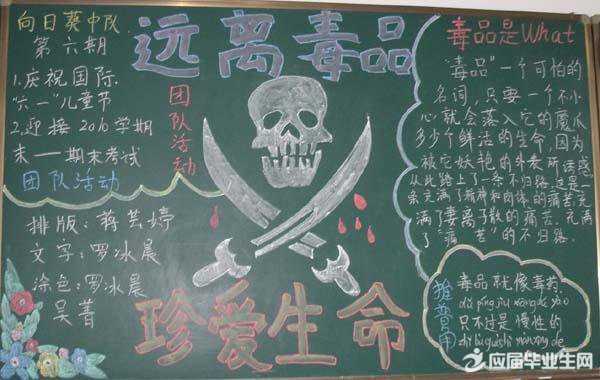 向日葵中队
第六期
1.庆祝国际
“六一”儿童节
2.迎接2010学期
末——期末考试
团队活动
排版：蒋芸婷
文字：罗冰晨
涂色：罗冰晨
吴菁
远离毒品
团队活动
珍爱生命
毒品是What
“毒品”一个可怕的
名词，只要一个不小
心就会落入它的魔爪
多少个鲜活的生命，因为
被它妖艳的外表所诱惑
从此踏上了一条不归路，这是一
条充满了精神和肉体的痛苦，充
满了妻离子散的痛苦。充满
了“痛苦”的不归路。
推普周
毒品就像毒药
只不过是慢性的
应届毕业生网